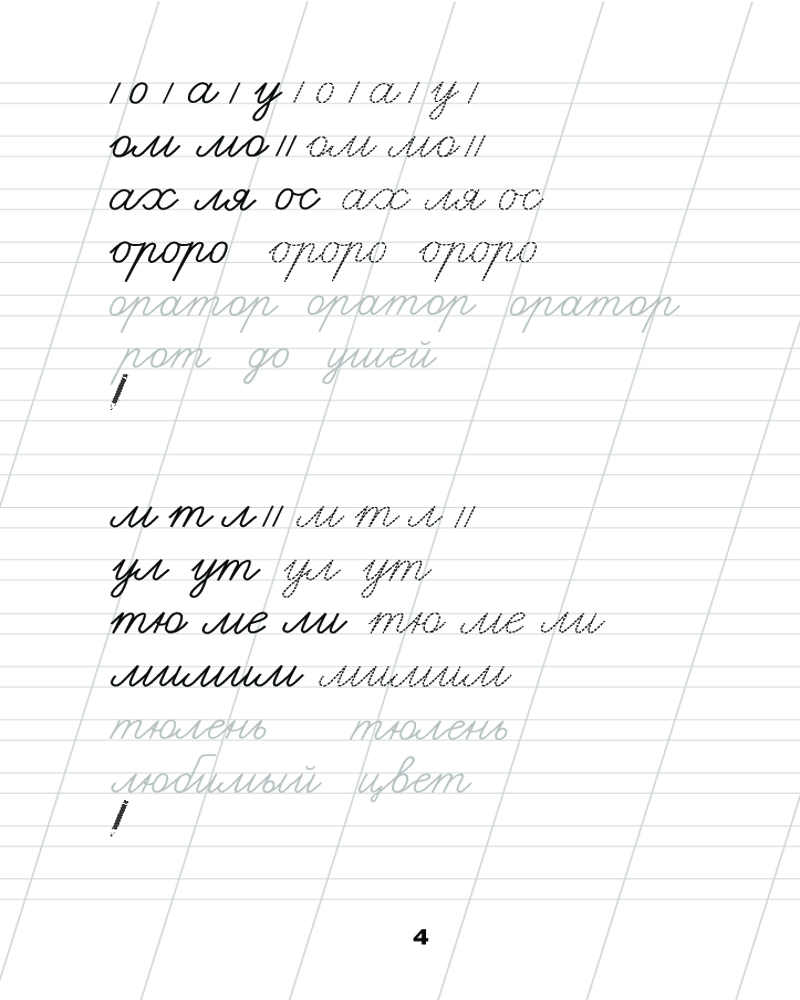 / о / а / у / о / а / у /
ом мо // ом мо //
ах ля ос ах ля ос
ороро ороро ороро
оратор оратор оратор
рот до ушей
м т л // м т л //
ул ут ул ут
тю ме ли тю ме ли
мимим мимим
тюлень тюлень
любимый цвет
4